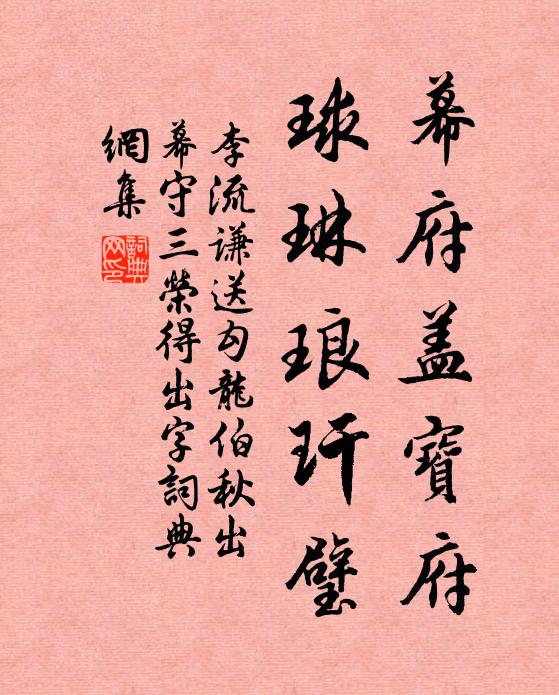 幕府盖寶府
球琳琅玕璧
李流谦送勾龍伯秋出
幕守三榮得出字詞典
網集
詞典
网印